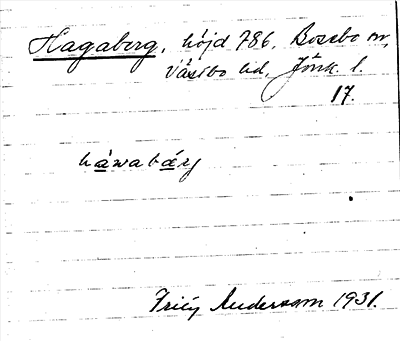 Hagaberg, höjd 786, Bosebo sn,
Västbo hd, Jönk. l.
17.
hàwabàrj
Andersson 1931.